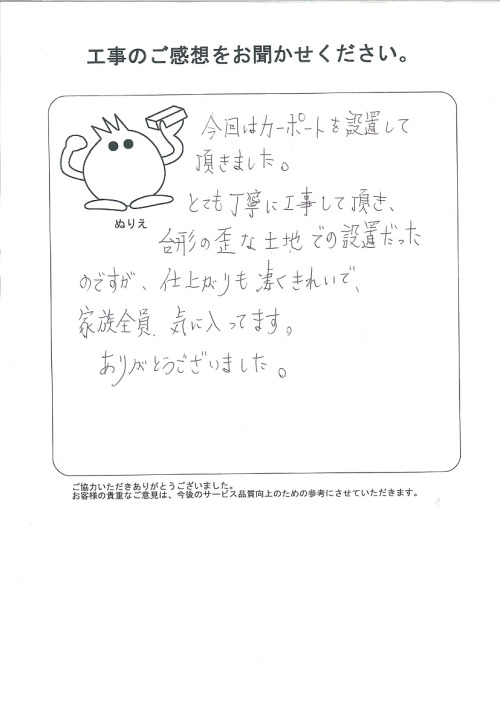 工事のご感想をお聞かせください。
今回はカーポートを設置して
頂きました。
とても丁寧に工事して頂き、
ぬりえ
台形の歪な土地での設置だった
のですが、仕上がりも凄くきれいで、
家族全員、気に入ってます。
ありがとうございました。
ご協力いただきありがとうございました。
お客様の貴重なご意見は、今後のサービス品質向上のための参考にさせていただきます。